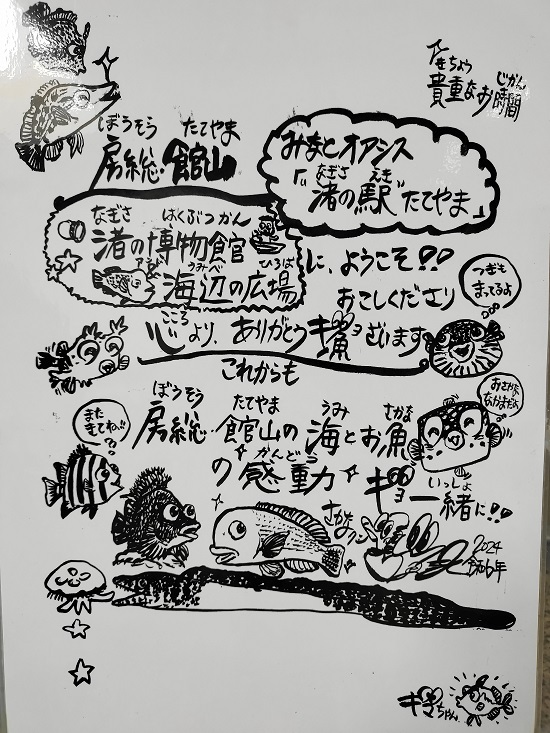 きちょう じかん
貴重なお時間
ぼうそう たてやま
房総・館山
みなとオアシス
なぎさ えき
「"渚の駅"たてやま」
なぎさ はくぶつかん
渚の博物館
うみべ ひろば
海辺の広場
に、ようこそ!!
つぎも
まってるよ
おこしくださり
こころ
心より、ありがとうギョざいます
これからも
おさかな
なかまだよ
また
きてね!!
ぼうそう たてやま うみ さかな
房総・館山の海とお魚
かんどう いっしょ
の感動 ギョ一緒に!!
さかなクン
2024
令和6年
ギョちゃん